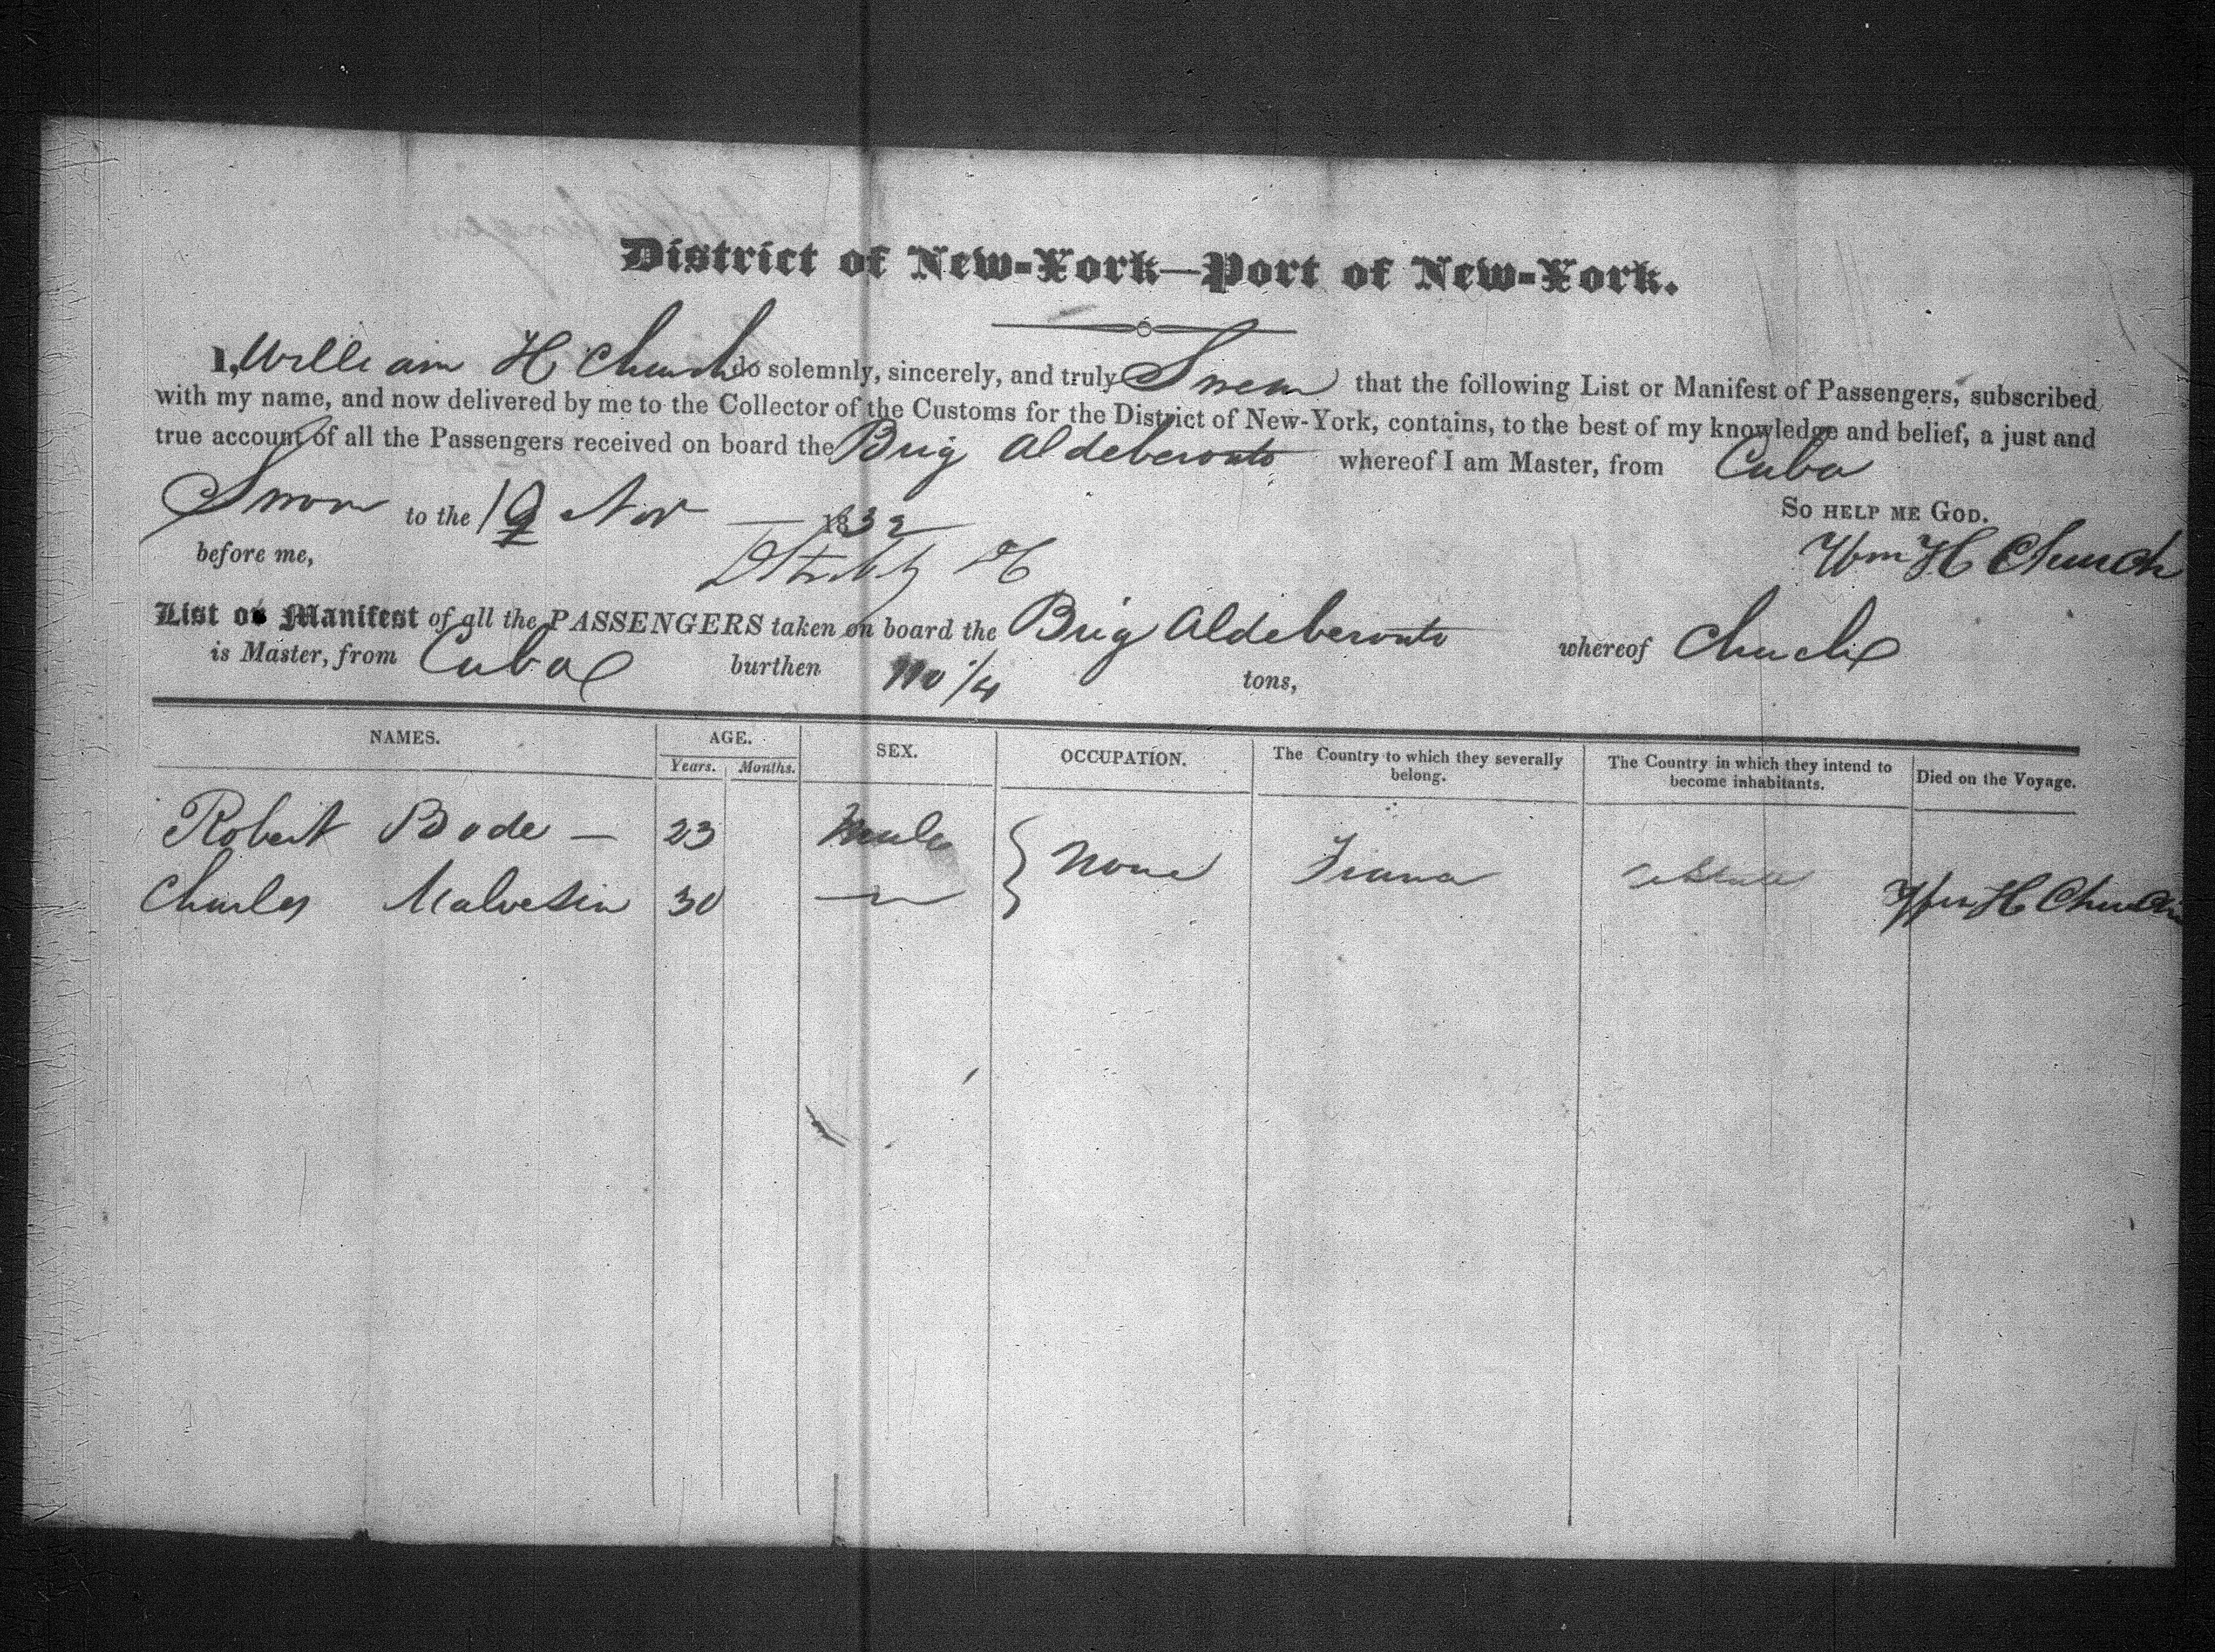 District of New-York—Port of New-York.
I, William H Church do solemnly, sincerely, and truly Swear that the following List or Manifest of Passengers, subscribed
with my name, and now delivered by me to the Collector of the Customs for the District of New-York, contains, to the best of my knowledge and belief, a just and
true account of all the Passengers received on board the Brig Aldeberonto whereof I am Master, from Cuba
Sworn to the 19 Nov 1832 So help me God.
before me, Wm H Church
List or Manifest of all the PASSENGERS taken on board the Brig Aldeberonto whereof Church
is Master, from Cuba burthen tons,
NAMES. AGE. SEX. OCCUPATION. The Country to which they severally belong. The Country in which they intend to become inhabitants. Died on the Voyage.
Years. Months.
Robert Bode — 23 Male None France
Charles Malvesin 30 Wm H Church